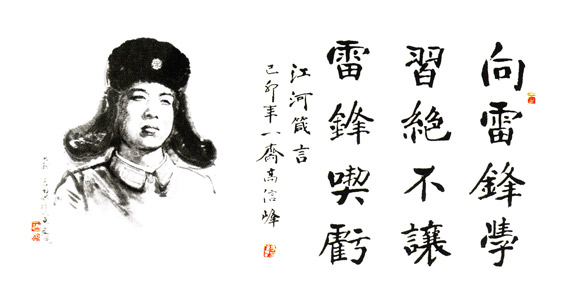 向雷鋒學
習絶不讓
雷鋒喫虧
江河箴言
己卯年一齋高信峰